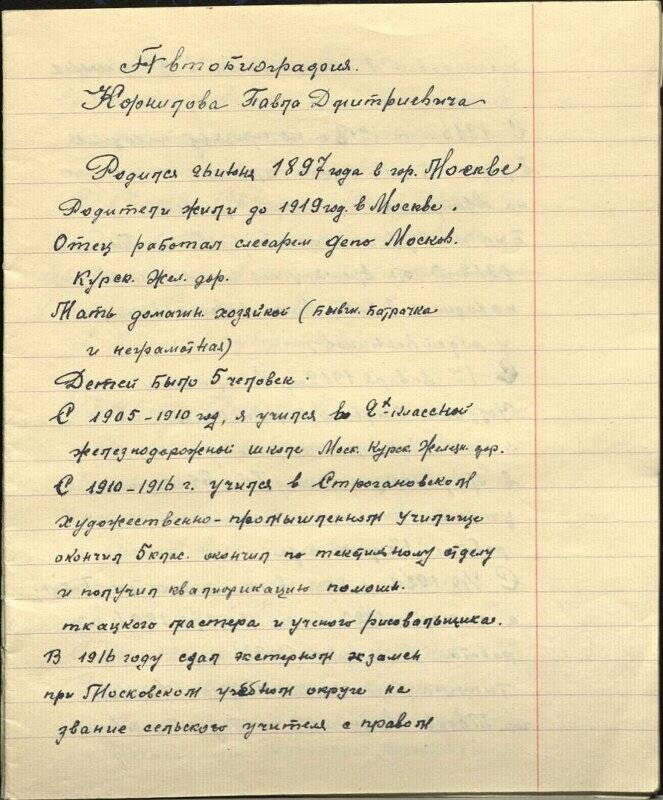 Автобиография.
Корнилова Павла Дмитриевича
Родился 26 июня 1897 года в гор. Москве
Родители жили до 1919 год. в Москве.
Отец работал слесарем депо Москов.
Курск. жел. дор.
Мать домашн. хозяйкой (бывш. батрачка
и неграмотная)
Детей было 5 человек.
С 1905-1910 год, я учился во 2х классной
железнодорожной школе Моск. Курск. Железн. дор.
С 1910-1916 г. учился в Строгановском
художественно-промышленном училище
окончил 5 клас. окончил по текстильному отделу
и получил квалификацию помощ.
ткацкого мастера и ученого рисовальщика.
В 1916 году сдал экстерном экзамен
при Московском учебном округе на
звание сельского учителя с правом